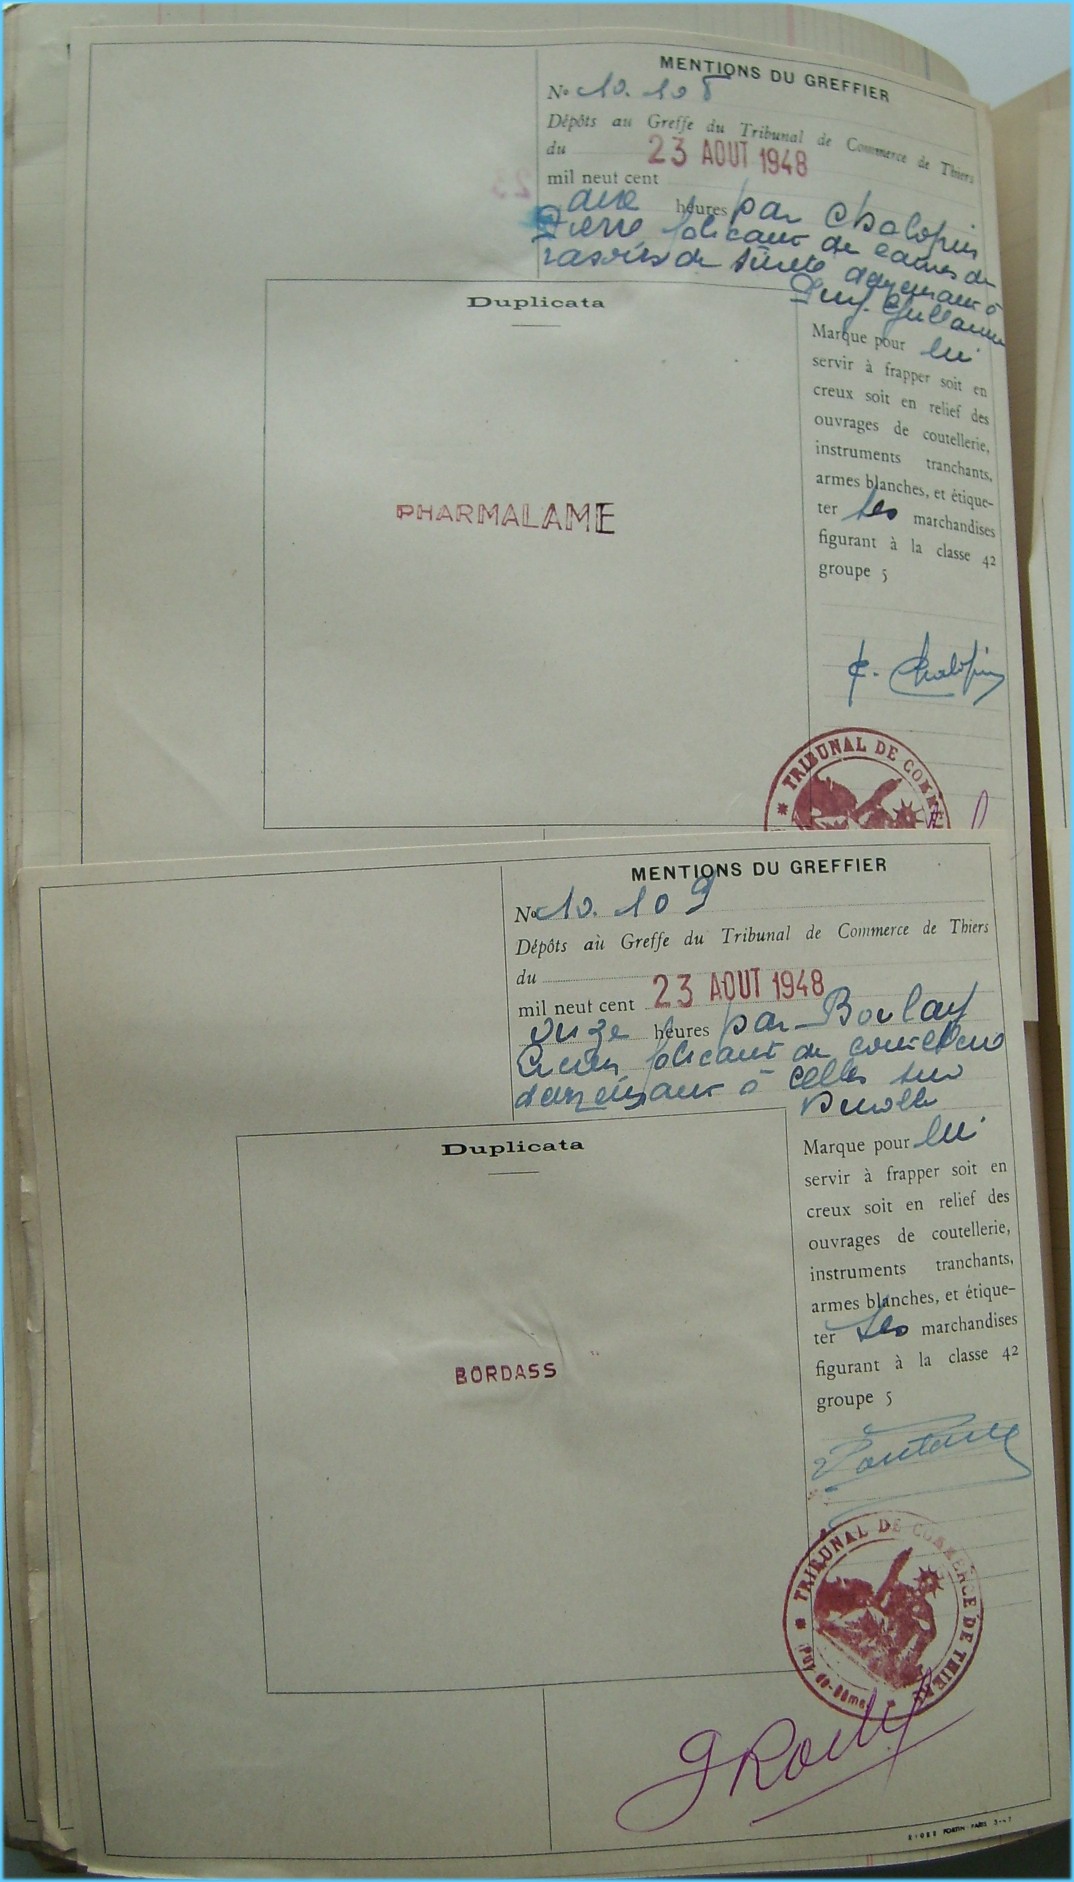 MENTIONS DU GREFFIER
No 10.108
Dépôts au Greffe du Tribunal de Commerce de Thiers
du 23 AOUT 1948
mil neuf cent
heures par Chalopin
Pierre fabricant de lames de
rasoirs de sûreté demeurant à
Puy Guillaume
Duplicata
Marque pour lui
servir à frapper soit en
creux soit en relief des
ouvrages de coutellerie,
instruments tranchants,
armes blanches, et étique-
ter les marchandises
figurant à la classe 42
groupe 5
PHARMALAME
Chalopin
TRIBUNAL DE COMME
MENTIONS DU GREFFIER
No 10.109
Dépôts au Greffe du Tribunal de Commerce de Thiers
du
mil neuf cent 23 AOUT 1948
onze heures par Boulay
fabricant de coutellerie
demeurant à Celles sur
Durolle
Duplicata
Marque pour lui
servir à frapper soit en
creux soit en relief des
ouvrages de coutellerie,
instruments tranchants,
armes blanches, et étique-
ter les marchandises
figurant à la classe 42
groupe 5
BORDASS
TRIBUNAL DE COMMERCE DE THIERS
Puy-de-Dôme